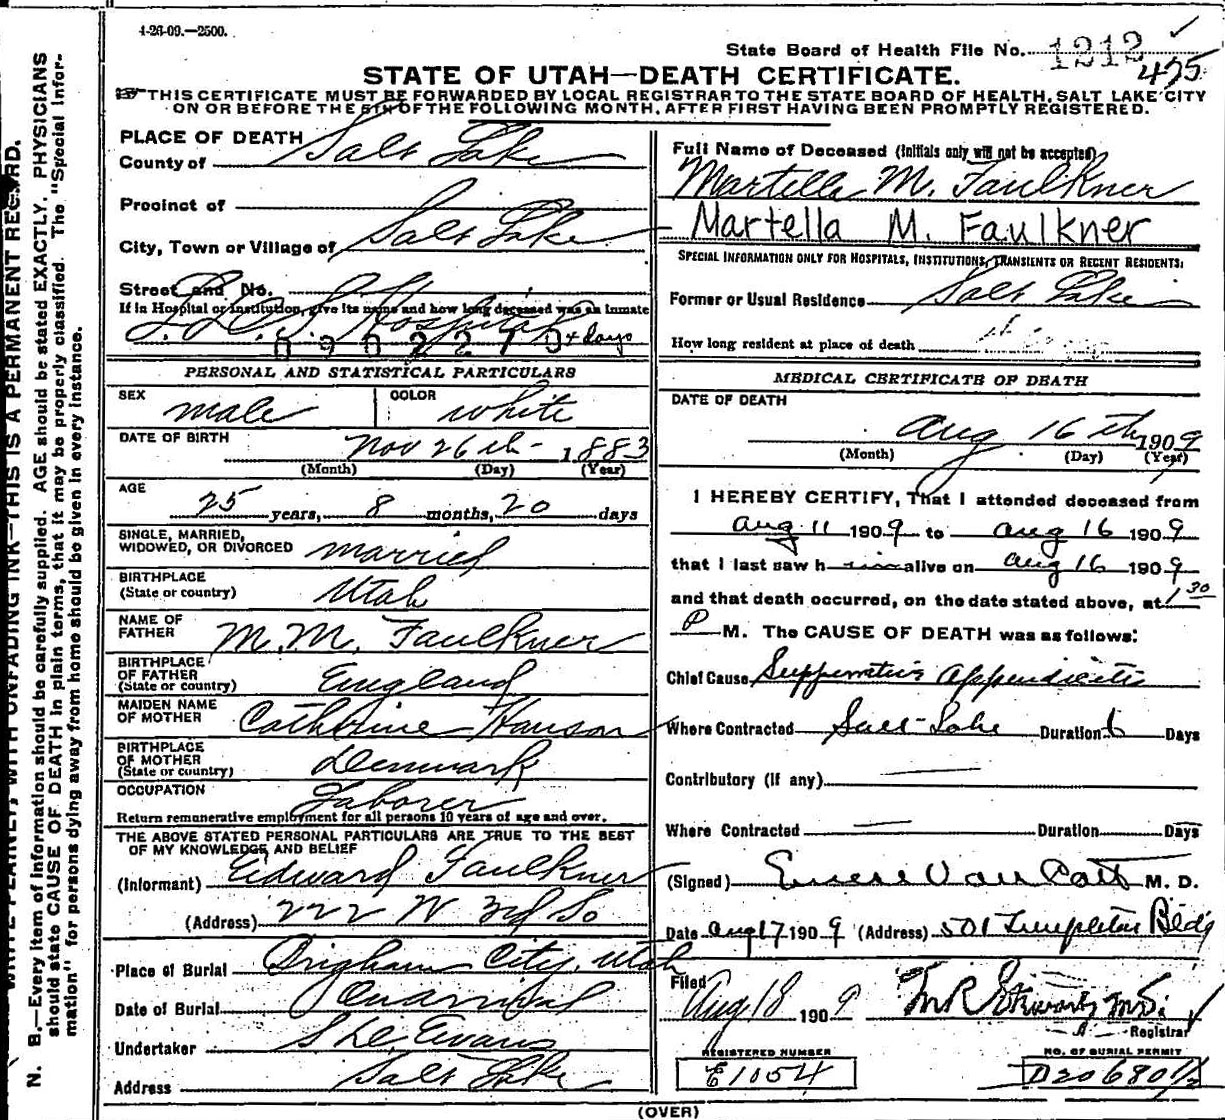 4-26-09.—2500.
State Board of Health File No. 1212
475
STATE OF UTAH—DEATH CERTIFICATE.
THIS CERTIFICATE MUST BE FORWARDED BY LOCAL REGISTRAR TO THE STATE BOARD OF HEALTH, SALT LAKE CITY
ON OR BEFORE THE 5TH OF THE FOLLOWING MONTH, AFTER FIRST HAVING BEEN PROMPTLY REGISTERED.
PLACE OF DEATH
County of Salt Lake
Precinct of
City, Town or Village of Salt Lake
Street and No.
If in Hospital or Institution, give its name and how long deceased was an inmate
L. D. S. Hospital 4 days
0902270
PERSONAL AND STATISTICAL PARTICULARS
SEX male COLOR white
DATE OF BIRTH Nov 26th 1883
(Month) (Day) (Year)
AGE
25 years, 8 months, 20 days
SINGLE, MARRIED,
WIDOWED, OR DIVORCED married
BIRTHPLACE
(State or country) Utah
NAME OF
FATHER M. M. Faulkner
BIRTHPLACE
OF FATHER
(State or country) England
MAIDEN NAME
OF MOTHER Catherine Hanson
BIRTHPLACE
OF MOTHER
(State or country) Denmark
OCCUPATION Laborer
Return remunerative employment for all persons 10 years of age and over.
THE ABOVE STATED PERSONAL PARTICULARS ARE TRUE TO THE BEST
OF MY KNOWLEDGE AND BELIEF
(Informant) Edward Faulkner
(Address) 222 W 3rd So
Place of Burial Brigham City, Utah
Date of Burial
Undertaker S D Evans
Address Salt Lake
Full Name of Deceased (Initials only will not be accepted)
Martella M. Faulkner
Martella M. Faulkner
SPECIAL INFORMATION ONLY FOR HOSPITALS, INSTITUTIONS, TRANSIENTS OR RECENT RESIDENTS:
Former or Usual Residence Salt Lake
How long resident at place of death
MEDICAL CERTIFICATE OF DEATH
DATE OF DEATH
Aug 16th 1909
(Month) (Day) (Year)
I HEREBY CERTIFY, That I attended deceased from
Aug 11 1909 to Aug 16 1909
that I last saw him alive on Aug 16 1909
and that death occurred, on the date stated above, at 1 30
P M. The CAUSE OF DEATH was as follows:
Chief Cause Suppurative Appendicitis
Where Contracted Salt Lake Duration 6 Days
Contributory (if any)
Where Contracted Duration Days
(Signed) Van Cott M. D.
Date Aug 17 1909 (Address) 501 Templeton Bldg
Filed
Aug 18 1909 M. D.
Registrar
REGISTERED NUMBER NO. OF BURIAL PERMIT
E1054 D20680 1/2
(OVER)
N. B.—Every item of information should be carefully supplied. AGE should be stated EXACTLY. PHYSICIANS
should state CAUSE OF DEATH in plain terms, that it may be properly classified. The "Special Infor-
mation" for persons dying away from home should be given in every instance.
WRITE PLAINLY, WITH UNFADING INK—THIS IS A PERMANENT RECORD.